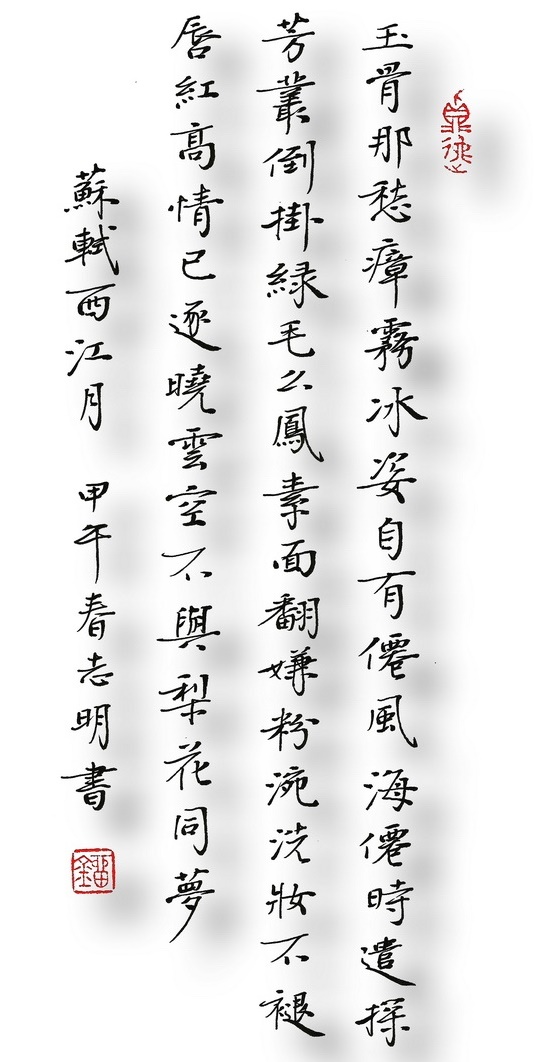 玉骨那愁瘴霧冰姿自有僊風海僊時遣探
芳叢倒掛綠毛么鳳素面翻嫌粉涴洗妝不褪
唇紅高情已逐曉雲空不與梨花同夢
蘇軾西江月 甲午春志明書